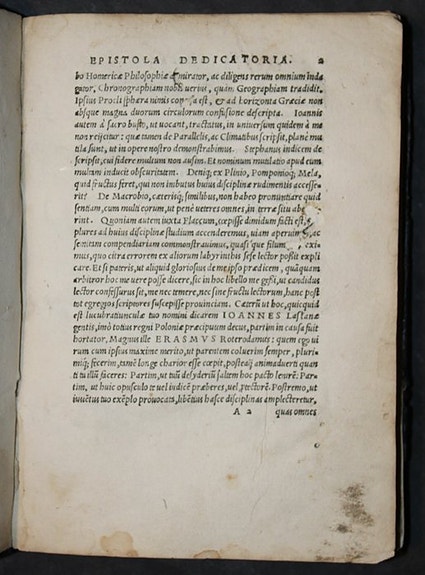 EPISTOLA DEDICATORIA. 2
bo Homericæ Philosophiæ admirator, ac diligens rerum omnium inda
gator, Chronographiam nobis uerius, quàm Geographiam tradidit.
Ipsius Procli sphæra nimis est, & ad horizonta Græciæ non
absque magna duorum circulorum confusione descripta. Ioannis
autem à sacro busto, ut uocant, tractatus, in uniuersum quidem à me
non reijcitur: quæ tamen de Parallelis, ac Climatibus scripsit, planè mu
tila sunt, ut in opere nostro demonstrabimus. Stephanus indicem de
scripsit, cui fidere multum non ausim. Et nominum mutilatio apud eum
multam inducit obscuritatem. Deniq; ex Plinio, Pomponioq; Mela,
quid fructus feret, qui non imbutus huius disciplinæ rudimentis accesse
rit? De Macrobio, cæterisq; similibus, non habeo pronuntiare quid
sentiam, cum mult eorum, ut penè ueteres omnes, in terræ situ
rint. Quoniam autem iuxta Flaccum, cœpisse dimidium facti est,
plures ad huius disciplinæ studium accenderemus, uiam aperuimus, ac
semitam compendiariam commonstrauimus, quasi que filum exi-
mus, quo citra errorem ex aliorum labyrinthis sese lector possit expli
care. Et si pateris, ut aliquid gloriosius de meipso prædicem, quāquam
arbitror hoc me uere posse dicere, sic in hoc libello me gessi, ut candidus
lector confessurus sit, me nec temere, nec sine fructu lectorum, hanc post
tot egregios scriptores suscepisse prouinciam. Cæterū ut hoc, quicquid
est lucubratiunculæ tuo nomini dicarem IOANNES Lastanæ
gentis, imò totius regni Poloniæ præcipuum decus, partim in causa fuit
hortator, Magnus ille ERASMVS Roterodamus: quem ego ui
rum cum ipsius maxime merito, ut parentem coluerim semper, pluri-
mūq; fecerim, tamē longe charior esse cœpit, posteaq̃ animaduerti quan
ti tu illū faceres: Partim, ut tuū desyderiū saltem hoc pacto lenirē: Par-
tim, ut huic opusculo te uel indicē præberes, uel, rectorē. Postremo, ut
iuuētus tuo exēplo prouocata, libētius hasce disciplinas amplecteretur,
A 2 quas omnes